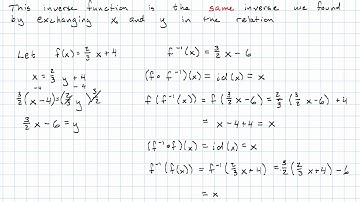 This inverse function is the same inverse we found
by exchanging x and y in the relation
Let f(x) = 2/3 x + 4
x = 2/3 y + 4
-4 -4
3/2 (x - 4) = (2/3 y) 3/2
3/2 x - 6 = y
f⁻¹(x) = 3/2 x - 6
(f ∘ f⁻¹)(x) = id(x) = x
f(f⁻¹(x)) = f(3/2 x - 6) = 2/3 (3/2 x - 6) + 4
= x - 4 + 4 = x
(f⁻¹ ∘ f)(x) = id(x) = x
f⁻¹(f(x)) = f⁻¹(2/3 x + 4) = 3/2 (2/3 x + 4) - 6
= x